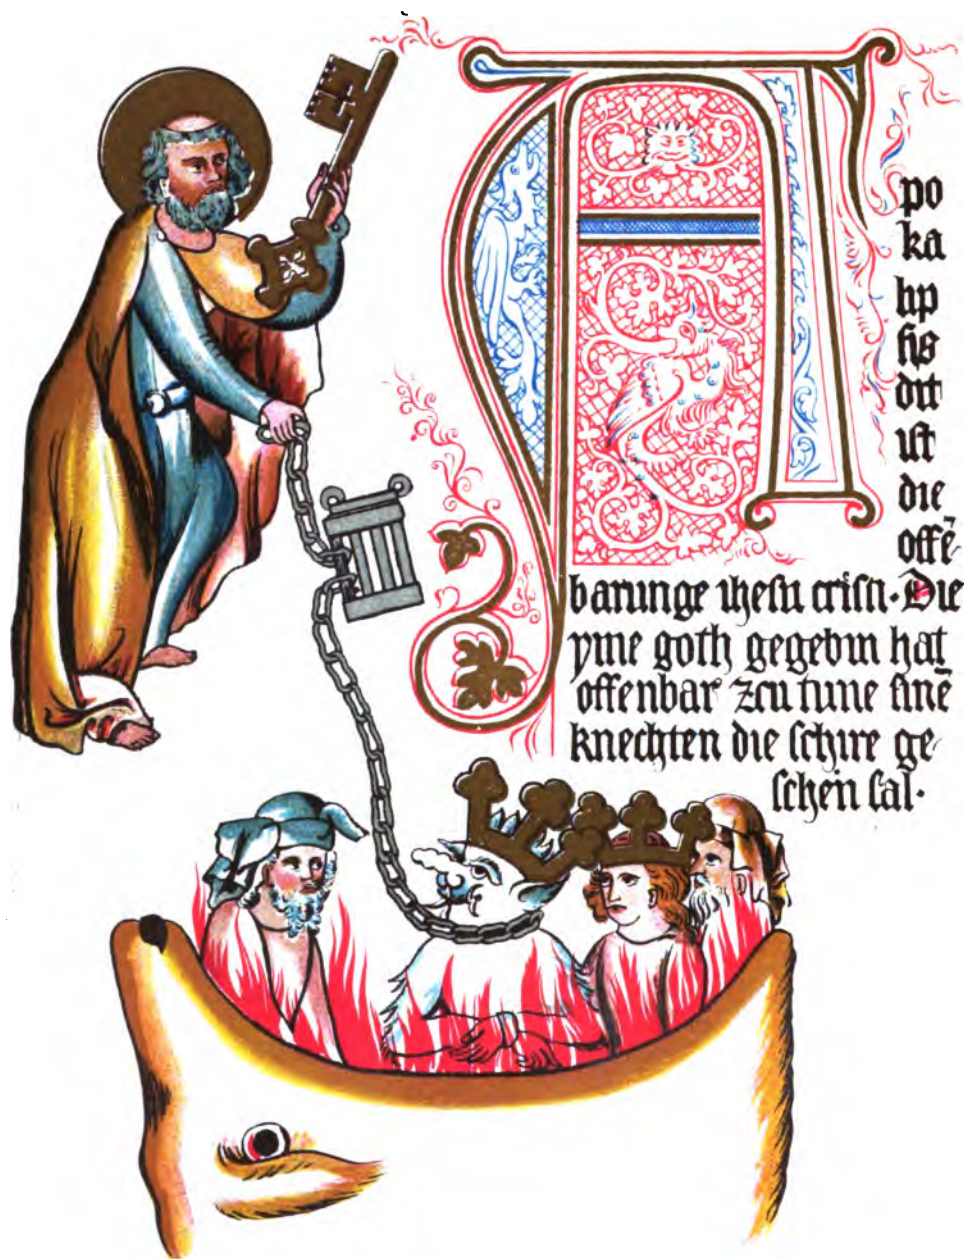 A
po
ka
lip
sis
dit
ist
die
offē
barunge ihesu cristi · Die
yme goth gegebin hat
offenbar zcu tune sinē
knechten die schire ge
schen sal ·